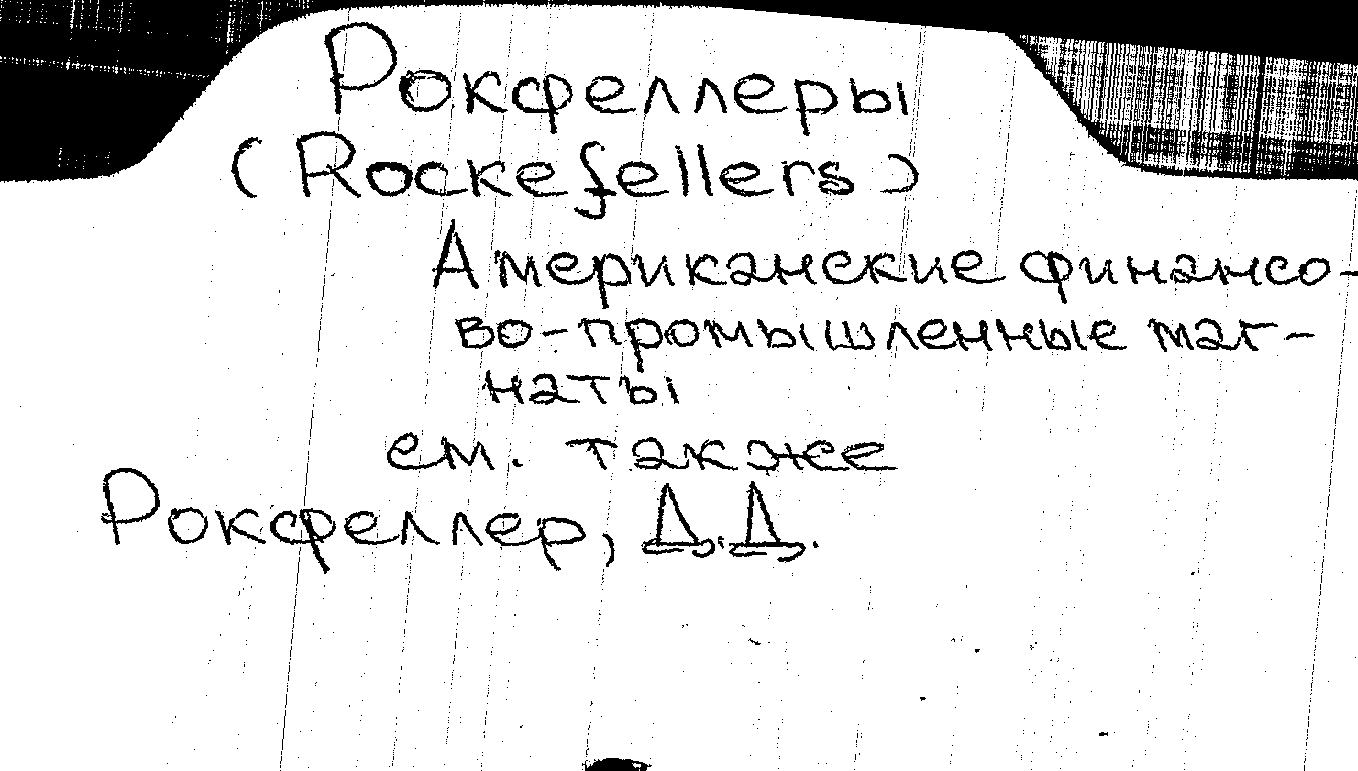 Рокфеллеры
(Rockefellers)
Американские финансо-
во-промышленные маг-
наты
см. также
Рокфеллер, Д.Д.